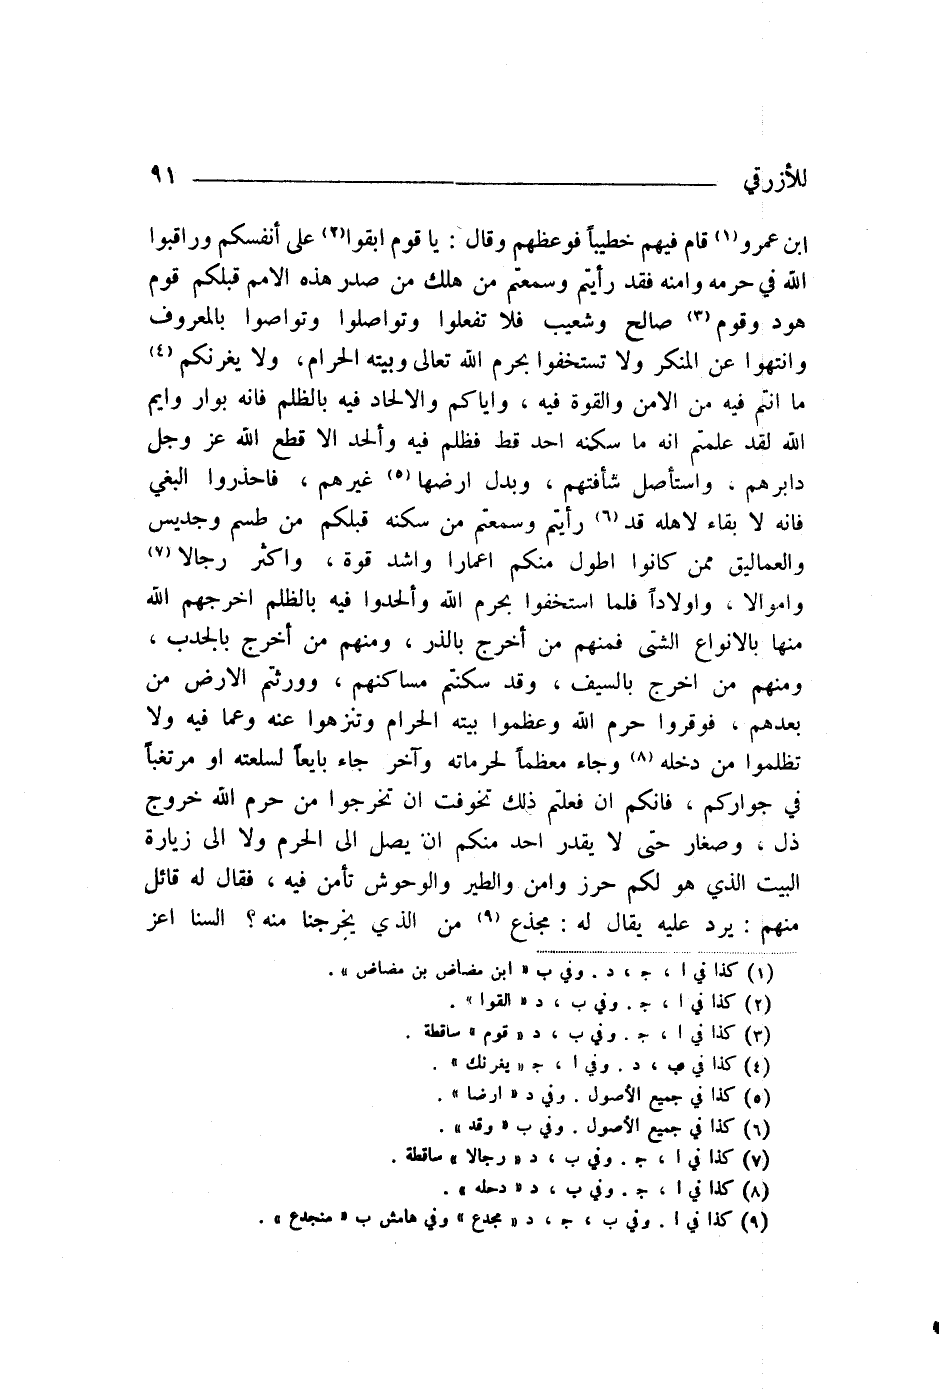 للأزرقي ٩١
ابن عمرو (١) قام فيهم خطيباً فوعظهم وقال : يا قوم ابقوا (٢) على أنفسكم وراقبوا
الله في حرمه وامنه فقد رأيتم وسمعتم من هلك من صدر هذه الامم قبلكم قوم
هود وقوم (٣) صالح وشعيب فلا تفعلوا وتواصلوا وتواصوا بالمعروف
وانتهوا عن المنكر ولا تستخفوا بحرم الله تعالى وبيته الحرام، ولا يغرنكم (٤)
ما انتم فيه من الامن والقوة فيه ، واياكم والالحاد فيه بالظلم فانه بوار وايم
الله لقد علمتم انه ما سكنه احد قط فظلم فيه وألحد الا قطع الله عز وجل
دابرهم . واستأصل شأفتهم ، وبدل ارضها (٥) غيرهم ، فاحذروا البغي
فانه لا بقاء لاهله قد (٦) رأيتم وسمعتم من سكنه قبلكم من طسم وجديس
والعماليق ممن كانوا اطول منكم اعمارا واشد قوة ، واكثر رجالا (٧)
واموالا ، واولاداً فلما استخفوا بحرم الله وألحدوا فيه بالظلم اخرجهم الله
منها بالانواع الشتى فمنهم من أخرج بالذر ، ومنهم من أخرج بالجدب ،
ومنهم من اخرج بالسيف ، وقد سكنتم مساكنهم ، وورثتم الارض من
بعدهم ، فوقروا حرم الله وعظموا بيته الحرام وتنزهوا عنه وعما فيه ولا
تظلموا من دخله (٨) وجاء معظماً لحرماته وآخر جاء بايعاً لسلعته او مرتغباً
في جواركم ، فانكم ان فعلتم ذلك تخوفت ان تخرجوا من حرم الله خروج
ذل ، وصغار حتى لا يقدر احد منكم ان يصل الى الحرم ولا الى زيارة
البيت الذي هو لكم حرز وامن والطير والوحوش تأمن فيه ، فقال له قائل
منهم : يرد عليه يقال له : مجذع (٩) من الذي يخرجنا منه ؟ السنا اعز
(١) كذا في ا ، ج ، د . وفي ب « ابن مضاض بن مضاض » .
(٢) كذا في ا ، ج . وفي ب ، د « القوا » .
(٣) كذا في ا ، ج . وفي ب ، د « قوم » ساقطة .
(٤) كذا في ب ، د . وفي ا ، ج « يغرنك » .
(٥) كذا في جميع الأصول . وفي د « ارضا » .
(٦) كذا في جميع الأصول . وفي ب « وقد » .
(٧) كذا في ا ، ج . وفي ب ، د « رجالا » ساقطة .
(٨) كذا في ا ، ج . وفي ب ، د « دحله » .
(٩) كذا في ا . وفي ب ، ج ، د « مجدع » وفي هامش ب « منجدع » .